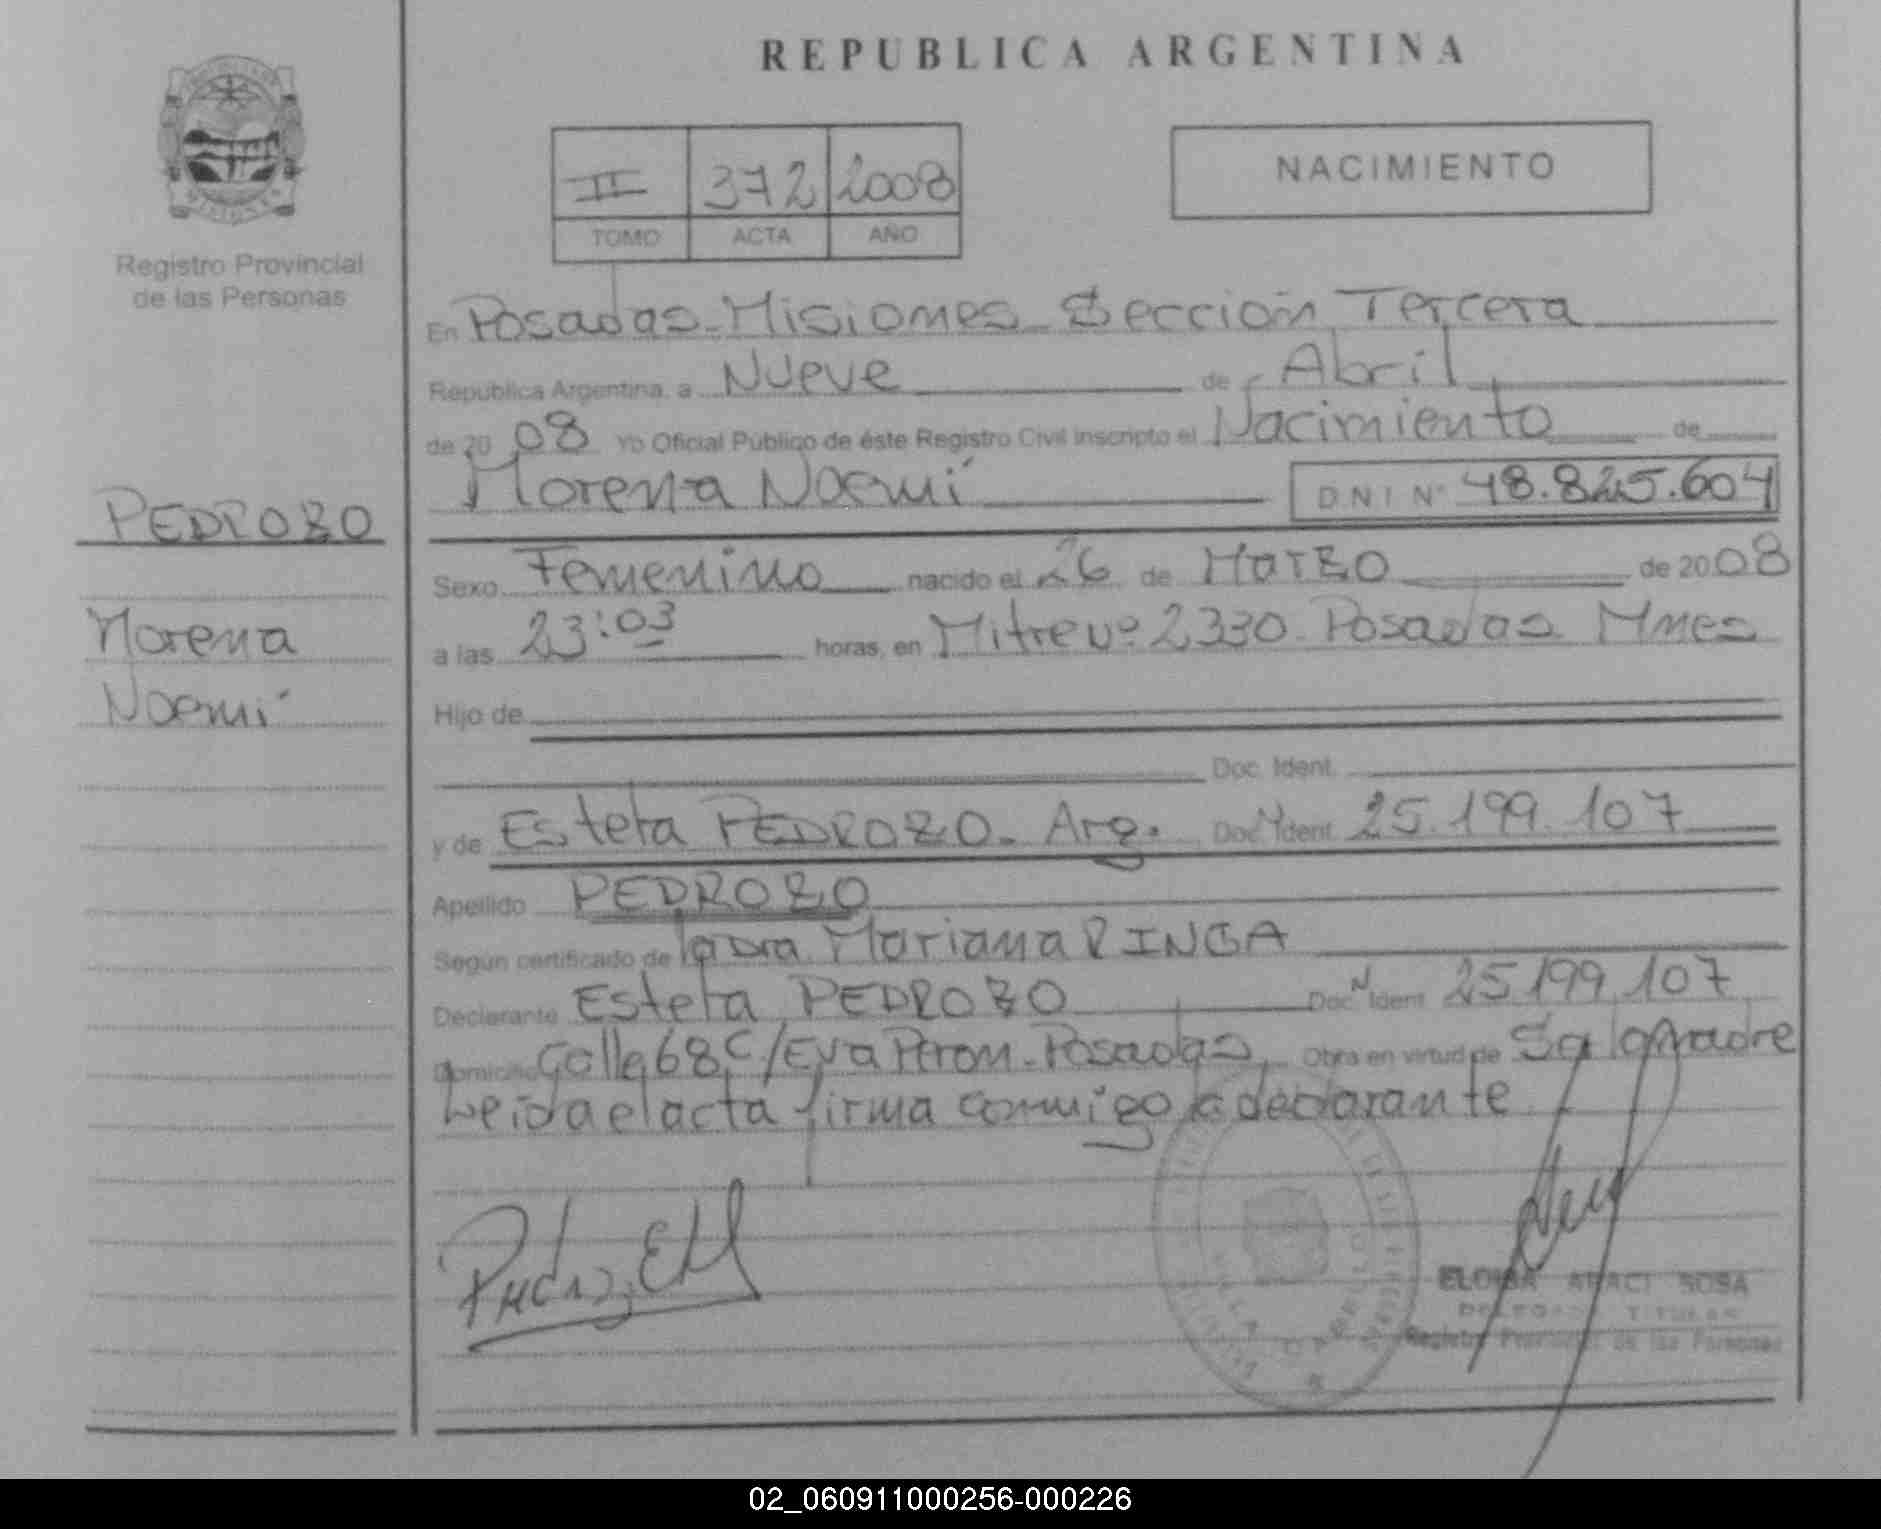 REPUBLICA ARGENTINA
II 372 2008
TOMO ACTA AÑO
NACIMIENTO
Registro Provincial
de las Personas
En Posadas-Misiones Sección Tercera
República Argentina, a Nueve de Abril
de 20 08 Yo Oficial Público de éste Registro Civil inscripto el Nacimiento de
Morena Noemí D N I Nº 48.825.604
PEDROZO
Morena
Noemí
Sexo Femenino nacido el 26 de Marzo de 2008
a las 23:03 horas, en Mitre Nº 2330 Posadas Mnes
Hijo de
Doc. Ident.
y de Estela PEDROZO. Arg. Doc. Ident. 25.199.107
Apellido PEDROZO
Según certificado de la Dra Mariana RINGA
Declarante Estela PEDROZO Doc. Ident. 25.199.107
Domicilio Calle 68 C/Eva Peron-Posadas Obra en virtud de Sa la Madre
Leida el acta firma conmigo la declarante
ELOISA ARACI SOSA
DELEGADA TITULAR
Registro Provincial de las Personas
02_060911000256-000226